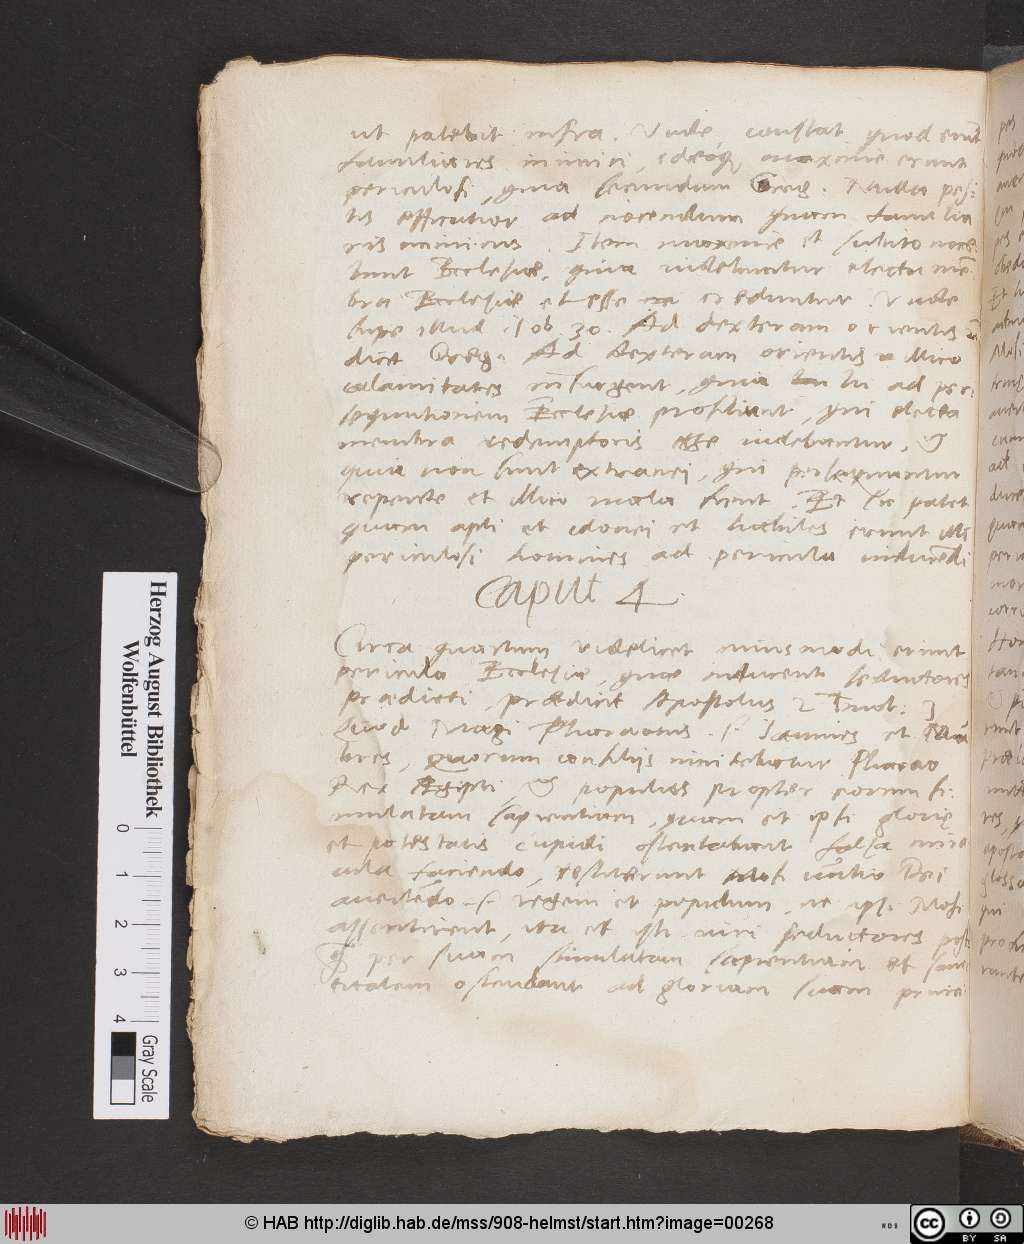 ut patebit infra. Unde, constat quod erunt
familiares inimici, ideoq maxime erunt
periculosi, quia secundum Greg. Nulla pes-
tis efficatior ad nocendum quam familia
ris inimicus. Item maxime et subito noce
bunt Ecclesiæ, quia videbuntur electa mē
bra Ecclesiæ et esse creduntur Unde
super illud Iob. 30. Ad dexteram orientis
dicit Greg. Ad dexteram orientis illico
calamitates insurgent, quia hi ad per-
sequutionem Ecclesiæ prosiliunt, qui electa
membra redemptoris esse videbantur,
quia non sunt extranei, qui
repente et illico mala fient. Et sic patet
quam apti et idonei et habiles erunt illi
periculosi homines ad pericula inducēdi
Caput 4.
Circa quartum videlicet cuiusmodi erunt
pericula Ecclesiæ, quæ inducent seductores
prædicti, prædicit Apostolus 2 Timot: 3
Quod Magi Pharaonis .s. Iannes et Mā
bres, quorum consiliis innitebatur Pharao
Rex Egipti, populus propter eorum si-
mulatam sapientiam, quam et ipsi glorię
et potestatis cupidi ostentabant falsa mira
cula faciendo, restiterunt Mosi Dei
avertēdo .s. regem et populum, ne ipsi Mosi
assentirent, ita et isti viri seductores
per suam simulatam sapientiam et sanc
titatem ostendant ad gloriam suam
Herzog August Bibliothek
Wolfenbüttel
0 1 2 3 4
Gray Scale
© HAB http://diglib.hab.de/mss/908-helmst/start.htm?image=00268
WDB
cc BY SA